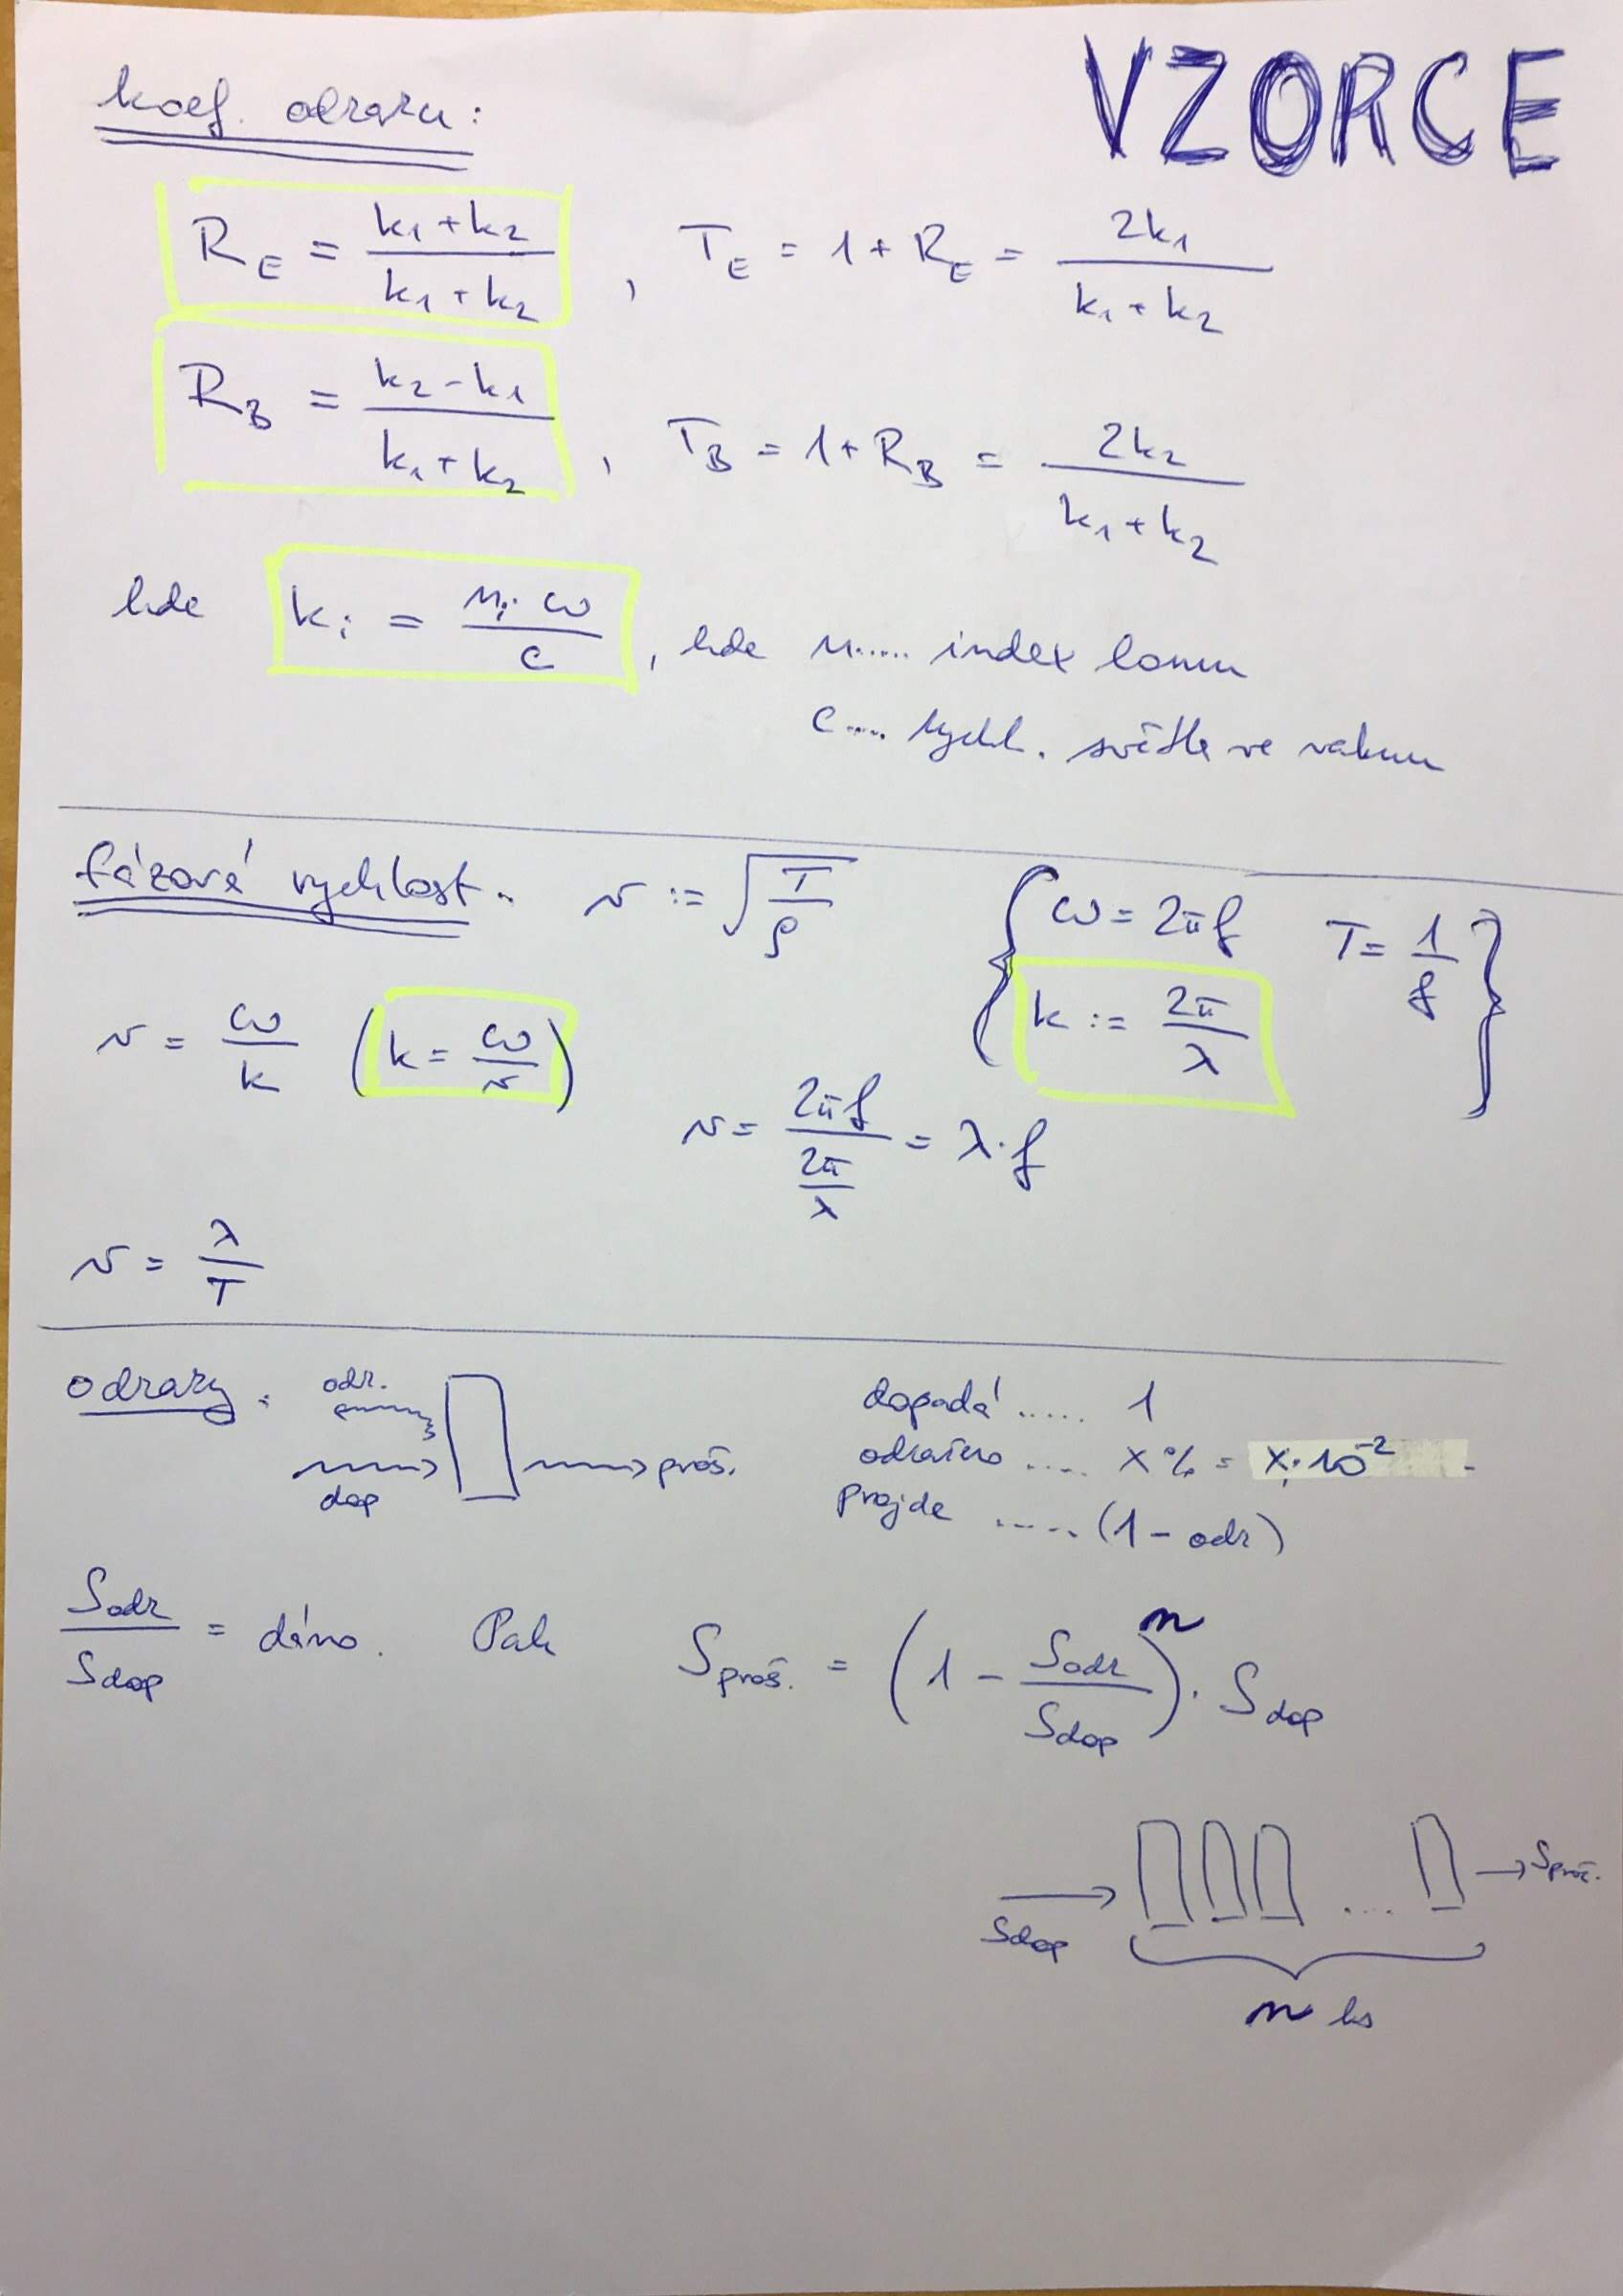 VZORCE
koef. odrazu:
R_E = (k₁+k₂)/(k₁+k₂) , T_E = 1+R_E = 2k₁/(k₁+k₂)
R_B = (k₂-k₁)/(k₁+k₂) , T_B = 1+R_B = 2k₂/(k₁+k₂)
kde k_i = n_i·ω/c , kde n..... index lomu
c.... rychl. světla ve vakuu
fázová rychlost. v := √(T/ρ) { ω = 2πf T = 1/f
v = ω/k (k = ω/v) k := 2π/λ }
v = 2πf/(2π/λ) = λ·f
v = λ/T
odrazy: odr. dopadá ..... 1
proš. odraženo .... x% = x·10⁻²
dop projde ..... (1 - odr)
S_odr/S_dop = dáno. Pak S_proš. = (1 - S_odr/S_dop)ⁿ · S_dop
S_dop .... S_proš.
n ks